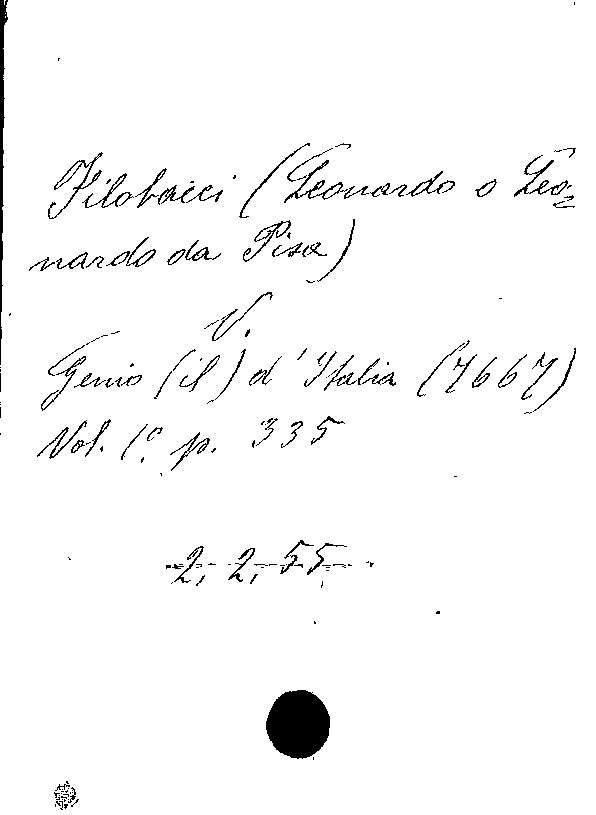 Filobacci (Leonardo o Leo=
nardo da Pisa)
V.
Genio (il) d'Italia (7667)
Vol. 1º p. 335
2, 2, 55